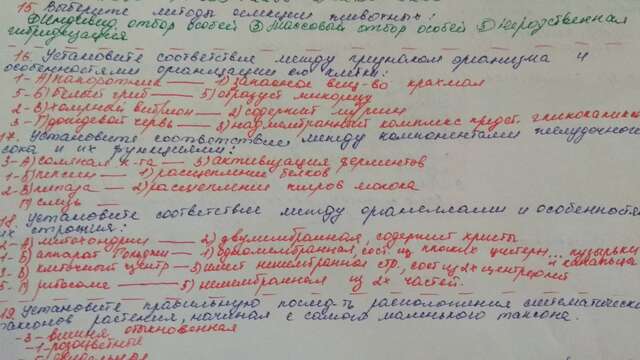 15. Выберите методы селекции животных:
① Индивид. отбор особей ③ Массовый отбор особей ⑤ Неродственная
гибридизация
16. Установите соответствие между признаком организма и
особенностями организации его клетки:
1 - А) папоротник — 1) запасное вещ-во крахмал
5 - Б) белый гриб — 5) образует микоризу
2 - В) холерный вибрион — 2) содержит муреин
3 - Г) дождевой червь — 3) надмембранный комплекс предст. гликокаликс
17. Установите соответствие между компонентами желудочного
сока и их функциями:
3 - А) соляная к-та — 3) активизация ферментов
1 - Б) пепсин — 1) расщепление белков
2 - В) липаза — 2) расщепление жиров молока
Г) слизь —
18. Установите соответствие между органеллами и особенностя
их строения:
2 - А) митохондрии — 2) двумембранная, содержит кристы
1 - Б) аппарат Гольджи — 1) одномембранная, сост. из плоских цистерн, пузырьки
3 - В) клеточный центр — 3) имеет немембранное стр., сост. из 2х центриолей
5 - Г) рибосома — 5) немембранная из 2х частей.
19. Установите правильную послед-ть расположения систематических
таксонов растения, начиная с самого маленького таксона.
- 3 - вишня обыкновенная
- 1 - розоцветные